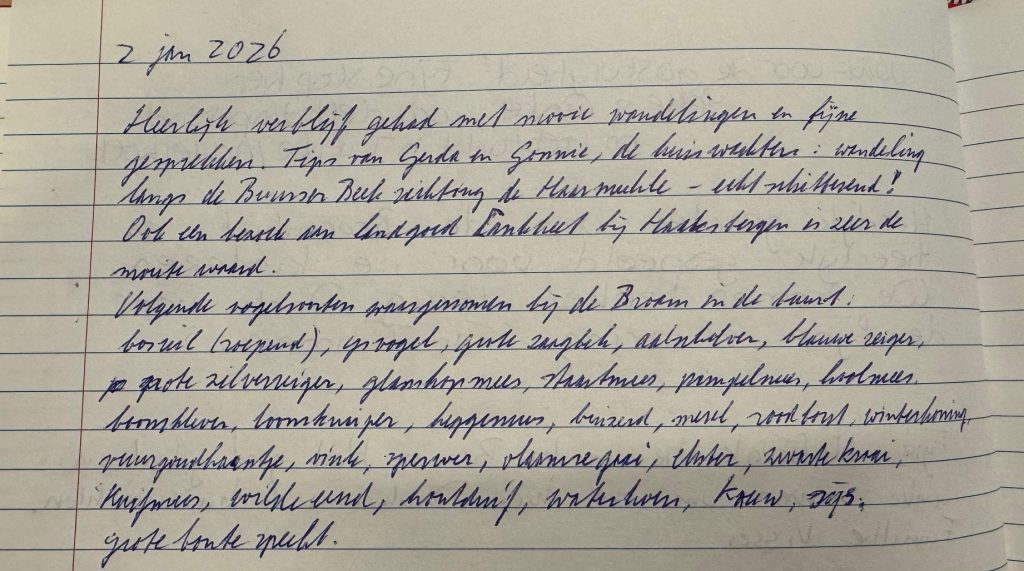 2 jan 2026
Heerlijk verblijf gehad met mooie wandelingen en fijne
gesprekken. Tips van Gerda en Gonnie, de huiswachters: wandeling
langs de Buurser Beek richting de Haarmuhle – echt schitterend!
Ook een bezoek aan landgoed Lankheet bij Haaksbergen is zeer de
moeite waard.
Volgende vogelsoorten waargenomen bij de Braam in de buurt:
bosuil (roepend), ijsvogel, grote zaagbek, aalscholver, blauwe reiger,
grote zilverreiger, glanskopmees, staartmees, pimpelmees, koolmees.
boomklever, boomkruiper, heggemus, buizerd, merel, roodborst, winterkoning,
vuurgoudhaantje, vink, sperwer, vlaamse gaai, ekster, zwarte kraai,
Kuifmees, wilde eend, houtduif, waterhoen, Kauw, sijs,
grote bonte specht.